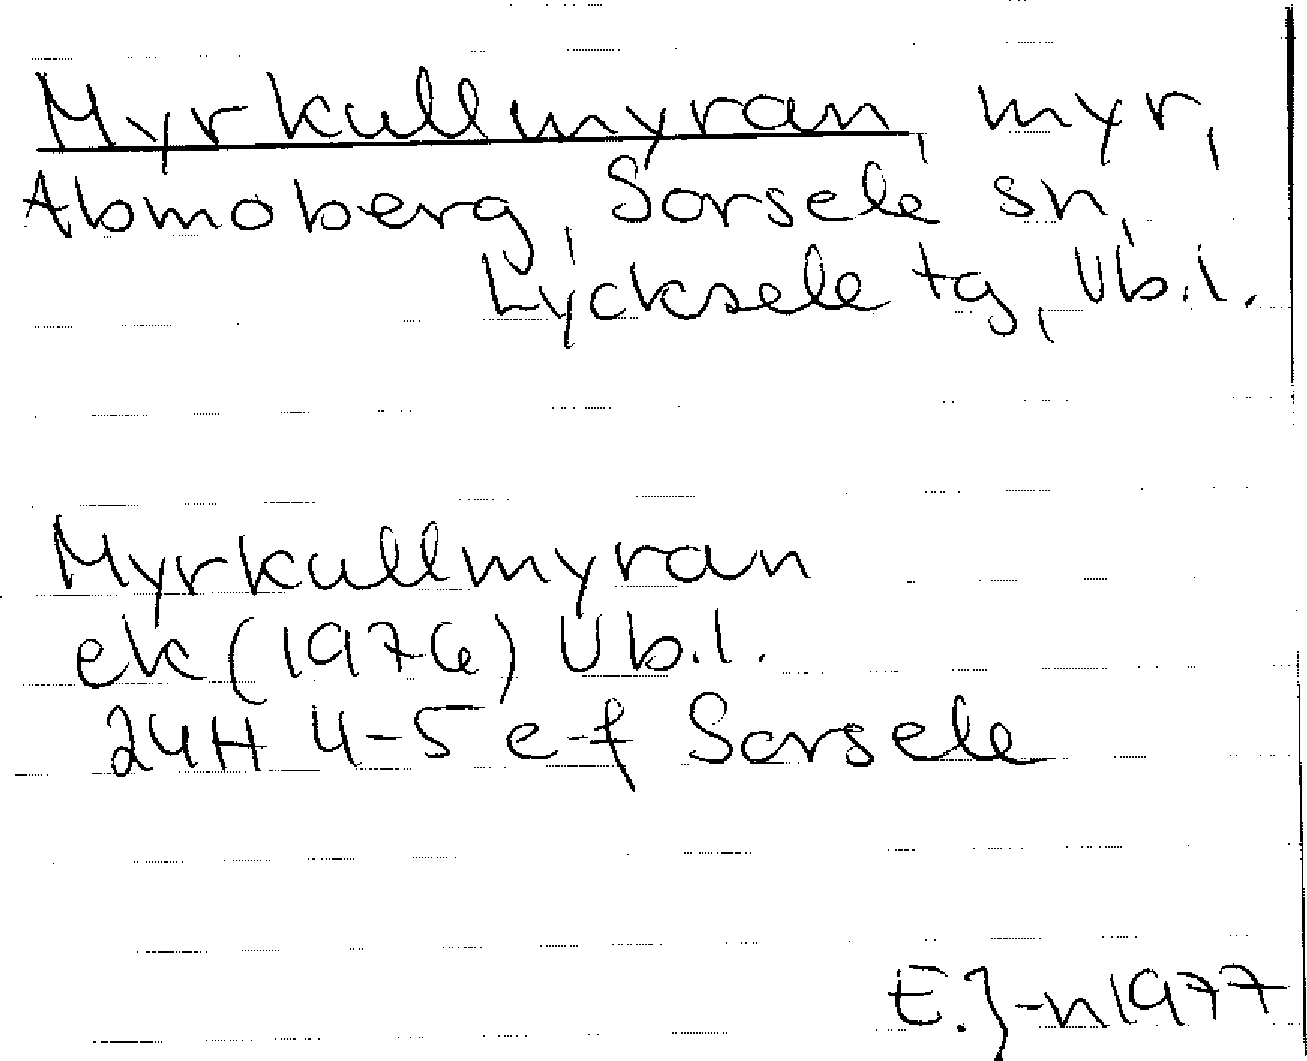 Myrkullmyran, myr,
Abmoberg, Sorsele sn,
Lycksele tg, Vb.l.
Myrkullmyran
ek (1976) Vb.l.
24H 4-5 e-f Sorsele
E.J-n 1977